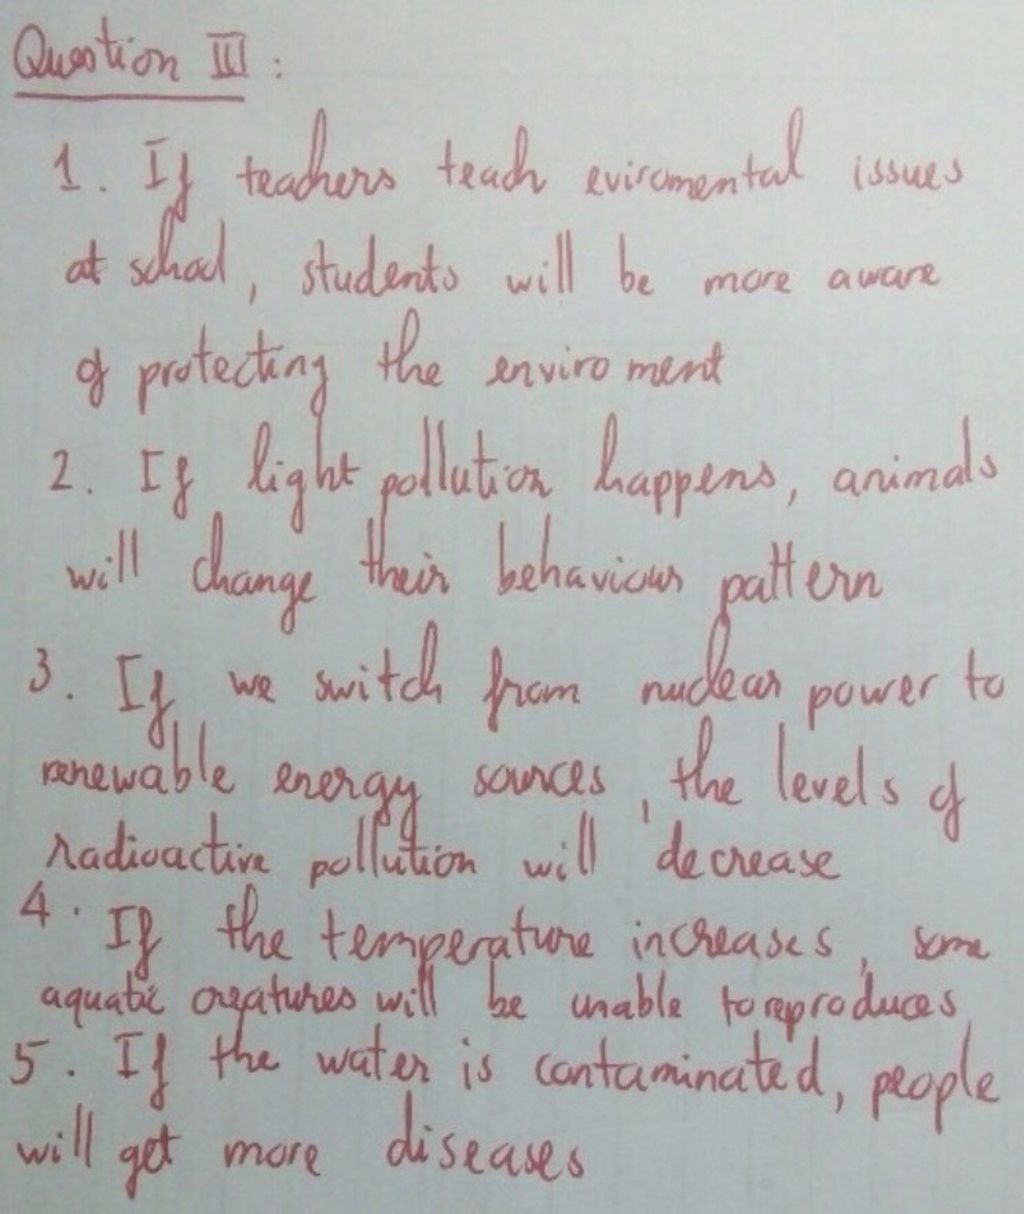 Question III :
1. If teachers teach eviromental issues
at school, students will be more aware
of protecting the enviroment
2. If light pollution happens, animals
will change their behaviour pattern
3. If we switch from nuclear power to
renewable energy sources, the levels of
radioactive pollution will decrease
4. If the temperature increases, some
aquatic creatures will be unable to reproduces
5. If the water is contaminated, people
will get more diseases